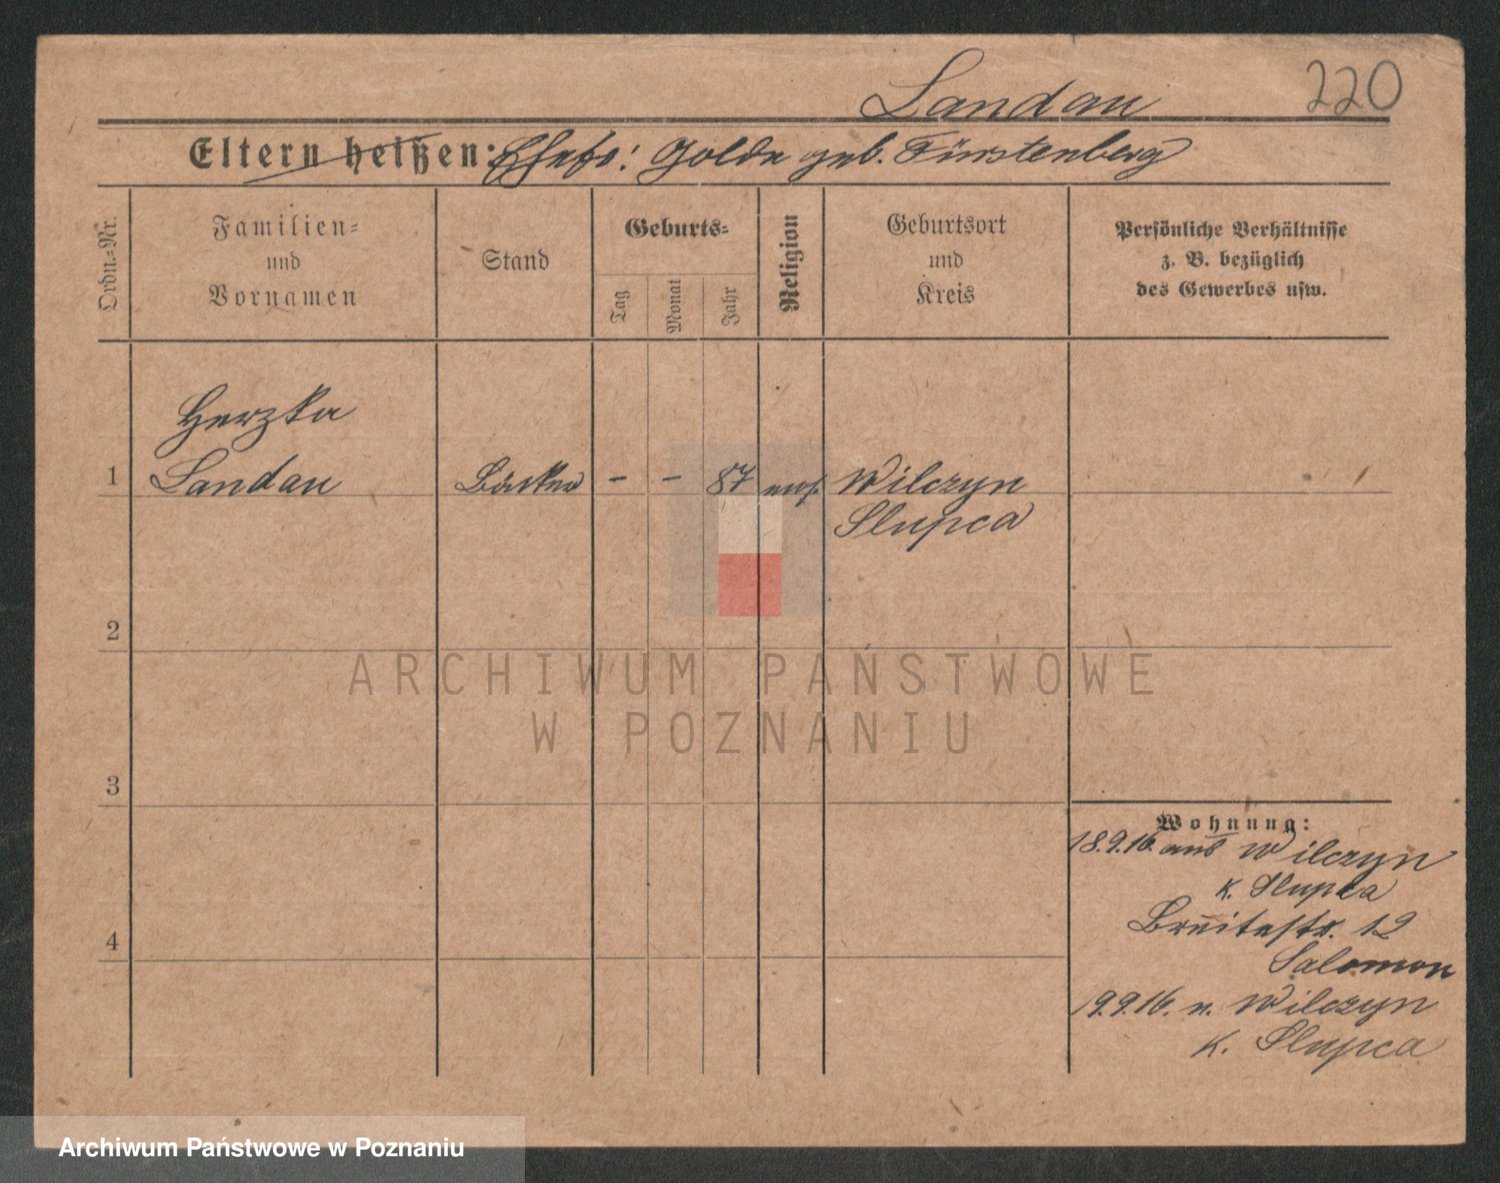 Landau
220
Eltern heißen: Ehefr: Golda geb. Fürstenberg
Ordn.-Nr.
Familien-
und
Vornamen
Stand
Geburts-
Tag
Monat
Jahr
Religion
Geburtsort
und
Kreis
Persönliche Verhältnisse
z. B. bezüglich
des Gewerbes usw.
Herzka
1 Landau Bäcker - - 87 mos. Wilczyn
Slupca
2
3
4
Wohnung:
18.9.16. aus Wilczyn
K. Slupca
Breitestr. 12
Salomon
19.9.16. n. Wilczyn
K. Slupca
ARCHIWUM PAŃSTWOWE
W POZNANIU
Archiwum Państwowe w Poznaniu